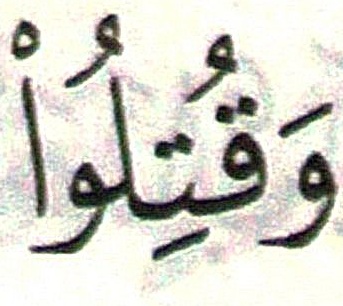 وَقُتِلُواْ